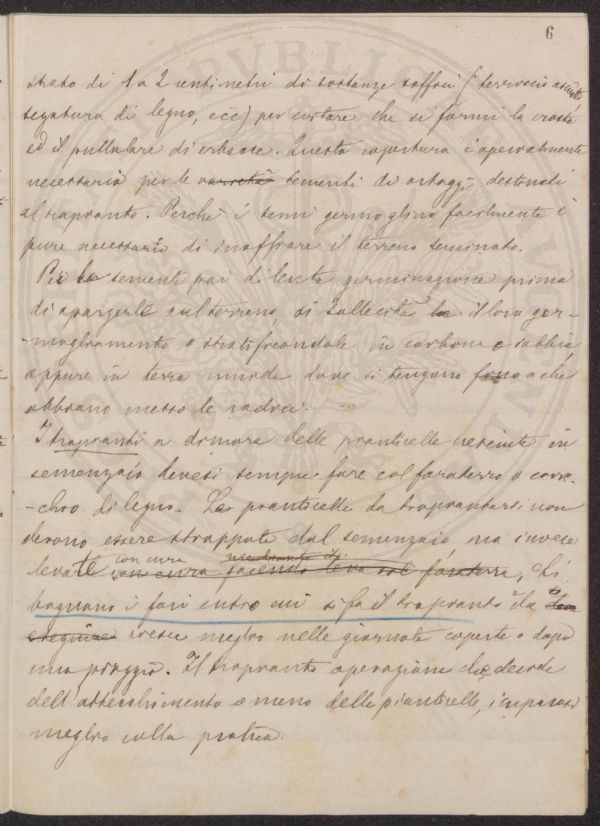 6
strato di 1 a 2 centimetri di sostanze soffici (terriccio
segatura di legno, ecc) per evitare che si formi la crosta
ed il pullulare di erbacce. Questa copertura è specialmente
necessaria per le varietà sementi di ortaggi, destinati
al trapianto. Perché i semi germoglino facilmente è
pure necessario di inaffiare il terreno seminato.
Per le sementi poi di lenta germinazione prima
di spargerle sul terreno, si sollecita il loro ger-
-mogliamento o stratificandole in carbone o sabbia
oppure in terra umida dove si tengono fino a che
abbiano messo le radici.
I trapianti a dimora delle pianticelle cresciute in
semenzaio devesi sempre fare col foraterra o cavic-
-chio di legno. Le pianticelle da trapiantarsi non
devono essere strappate dal semenzaio ma invece
con cura mediante il
levate con cura facendo leva col foraterra, Si
bagnano i fori entro cui si fa il trapianto
eseguire riesce meglio nelle giornate coperte o dopo
una pioggia. Il trapianto operazione che decide
dell'attecchimento o meno delle pianticelle, s'impara
meglio colla pratica.